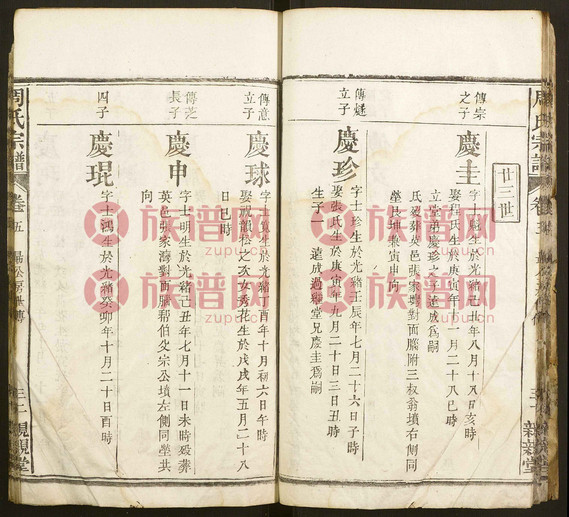 周氏宗譜
卷五
親親堂
廿三世
傳宗
之子
慶圭
生於光緒己丑年八月十八日亥時
娶程氏生於庚寅年十一月二十八巳時
立堂弟慶珍之子遠成爲嗣
氏歿葬英邑張家塆對面腦附三叔翁墳右側同
塋艮坤兼寅申向
傳燧
立子
慶珍
字士珍生於光緒壬辰年七月二十六日子時
娶張氏生於庚寅年九月二十日三日丑時
生子一 遠成過繼堂兄慶圭爲嗣
傳意
立子
慶球
生於光緒丁酉年十月初六日午時
娶戚韻松之次女秀花生於戊戌年五月二十八
日巳時
傳芝
長子
慶申
字士明生於光緒己丑年七月十一日未時歿葬
英邑張家塆對面腦幫伯父宗公墳左側同塋共
向
四子
慶琨
字士鴻生於光緒癸卯年十月二十日酉時
周氏宗譜
卷五
三二
親親堂
族谱网
zupu.cn